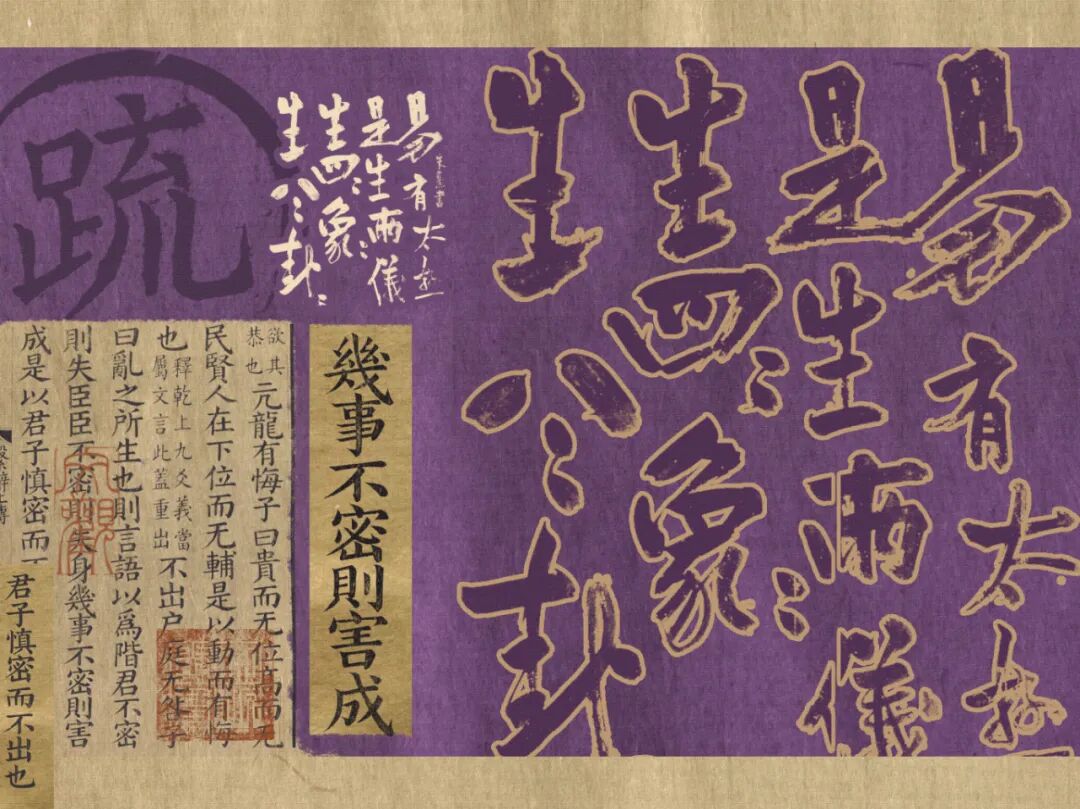 易有太極
是生兩〻儀
生四〻象
生八〻卦
易有太極
朱熹書
是生兩〻儀
生四〻象
生八〻卦〻
疏
幾事不密則害成
欲其恭也元龍有悔子曰貴而无位高而无
民賢人在下位而无輔是以動而有悔
也釋乾上九爻義當屬文言此蓋重出不出戶庭无咎子
曰亂之所生也則言語以爲階君不密
則失臣臣不密則失身幾事不密則害
成是以君子慎密而
君子慎密而不出也